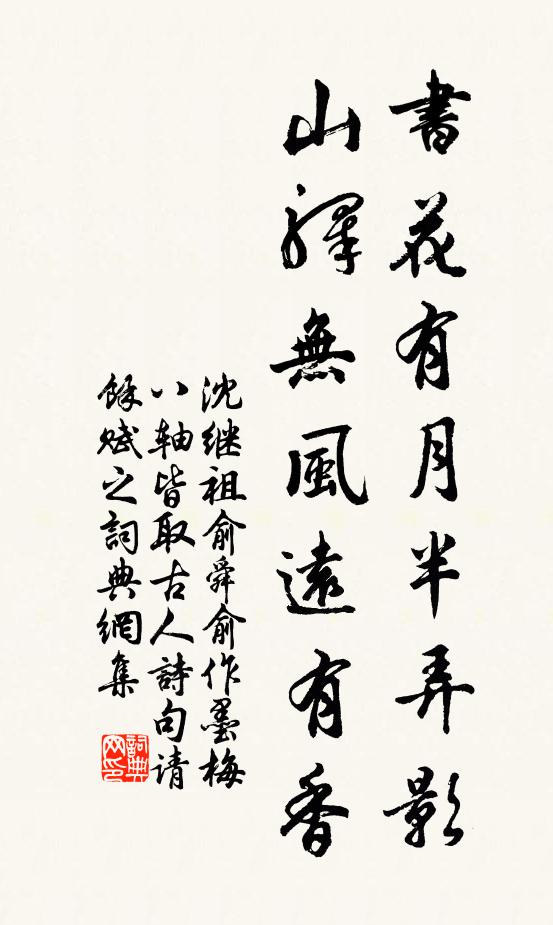 書花有月半弄影
山驛無風遠有香
沈继祖俞舜俞作墨梅
八軸皆取古人詩句请
餘赋之詞典網集
詞典网印